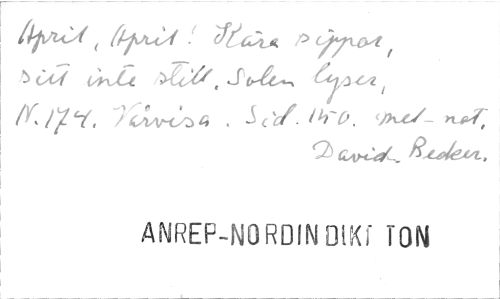 April, April! Kära sippor,
sitt inte still. Solen lyser,
N. 174. Vårvisa. Sid. 150. met-not.
David Becker.
ANREP-NORDIN DIKT TON